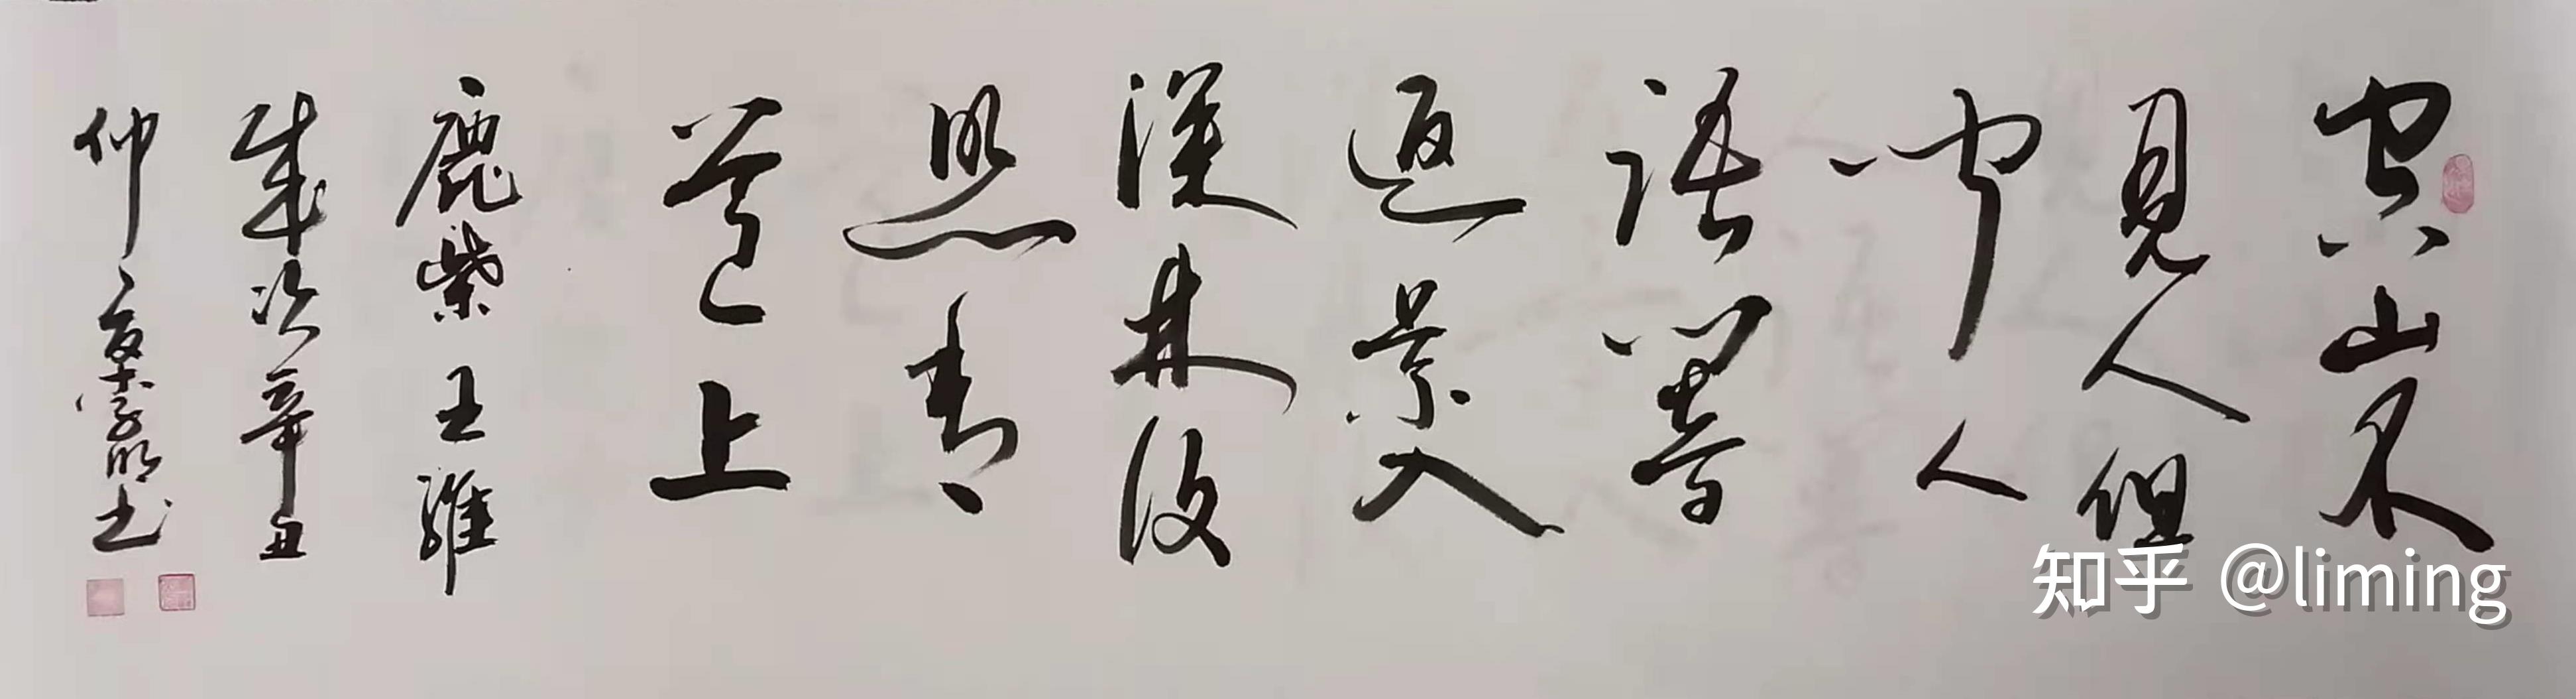 空山不
見人但
聞人
語響
返景入
深林復
照青
苔上
鹿柴 王維
歲次辛丑
仲夏李明书
知乎 @liming